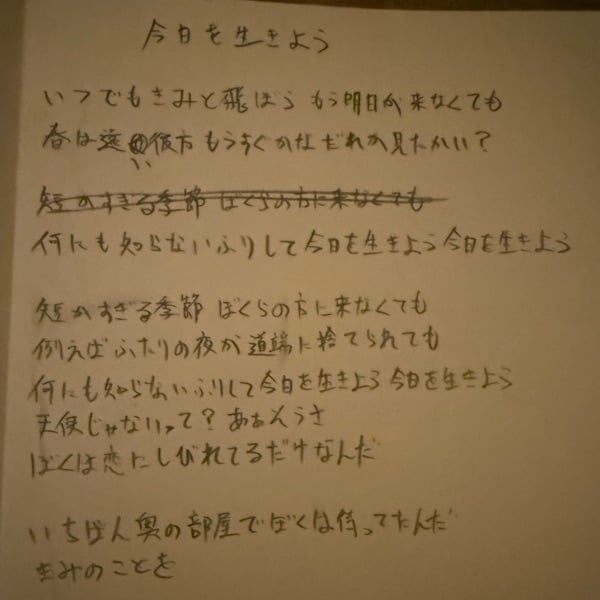 今日を生きよう
いつでもきみと飛ぼう もう明日が来なくても
春は遠い彼方 もうすぐかな だれか見たかい?
短かすぎる季節 ぼくらの方に来なくても
何にも知らないふりして今日を生きよう 今日を生きよう
短かすぎる季節 ぼくらの方に来なくても
例えばふたりの夜が道端に捨てられても
何にも知らないふりして今日を生きよう 今日を生きよう
天使じゃないって? ああそうさ
ぼくは恋にしびれてるだけなんだ
いちばん奥の部屋でぼくは待ってたんだ
きみのことを